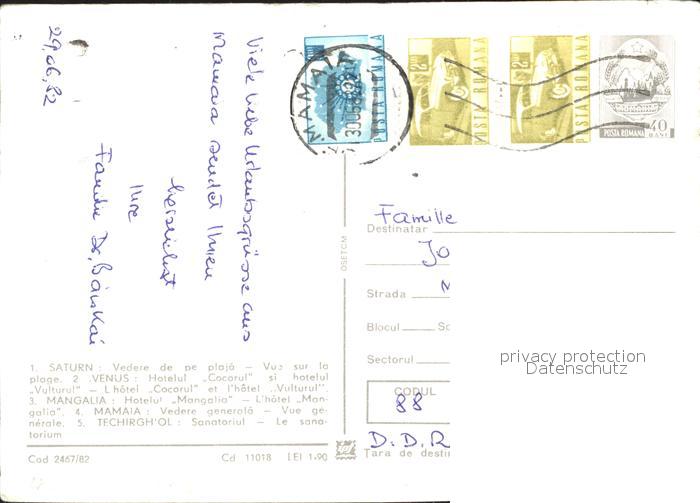 29.06.82
Viele liebe Urlaubsgrüsse aus
Mamaia sendet Ihnen
herzlichst
Ihre
Familie Dr. Bánkai
1. SATURN : Vedere de pe plajă – Vue sur la
plage. 2 .VENUS : Hotelul „Cocorul" și hotelul
„Vulturul" – L'hôtel „Cocorul" et l'hôtel „Vulturul".
3. MANGALIA : Hotelul „Mangalia" – L'hôtel „Man-
galia". 4. MAMAIA : Vedere generală – Vue gé-
nérale. 5. TECHIRGHIOL : Sanatoriul – Le sana-
torium
Cod 2467/82 Cd 11018 LEI 1.90
OSETCM
MAMAIA
POSTA ROMANA
POSTA ROMANA
POSTA ROMANA
POSTA ROMANA 40 BANI
Familie
Destinatar
Jo
Strada
Blocul Sc
Sectorul
CODUL
88
D.D.R
Țara de desti
privacy protection
Datenschutz